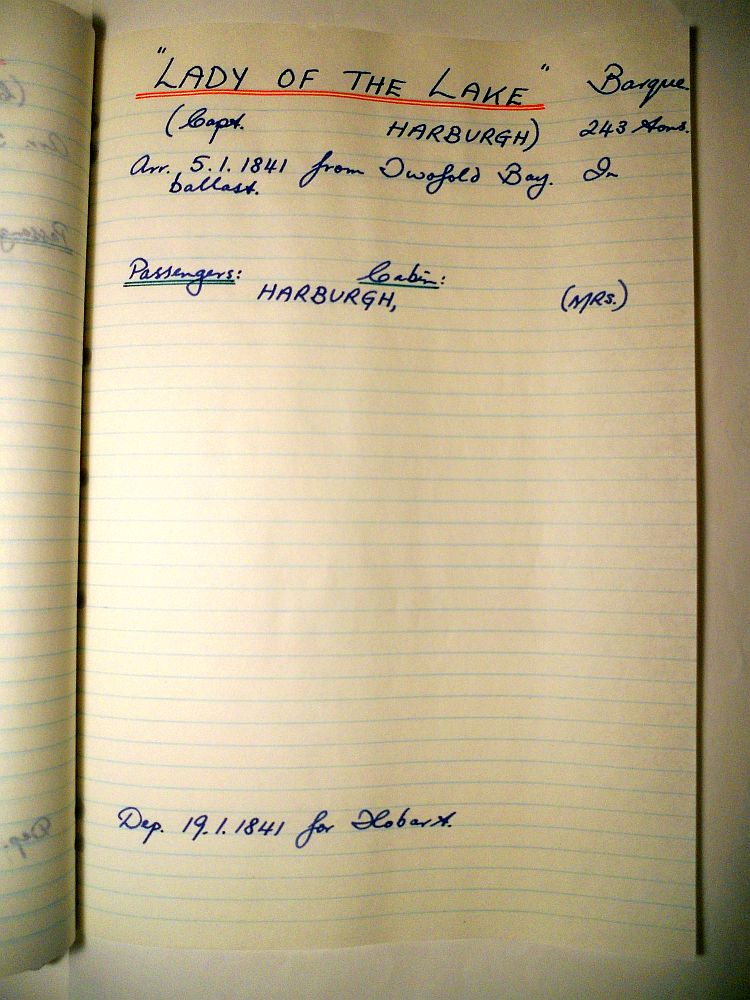 "LADY OF THE LAKE" Barque
(Capt. HARBURGH) 243 tons.
Arr. 5.1.1841 from Twofold Bay. In
ballast.
Passengers: Cabin:
HARBURGH, (MRS.)
Dep. 19.1.1841 for Hobart.